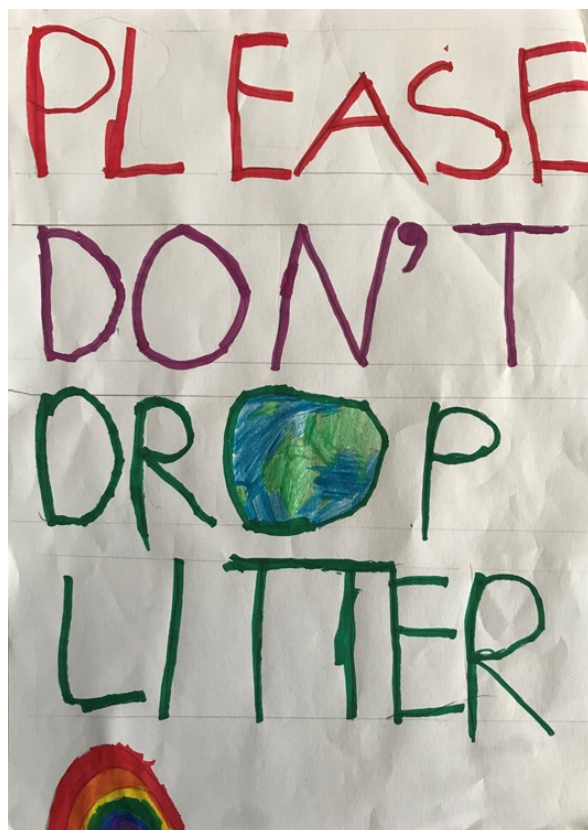 PLEASE
DON'T
DROP
LITTER